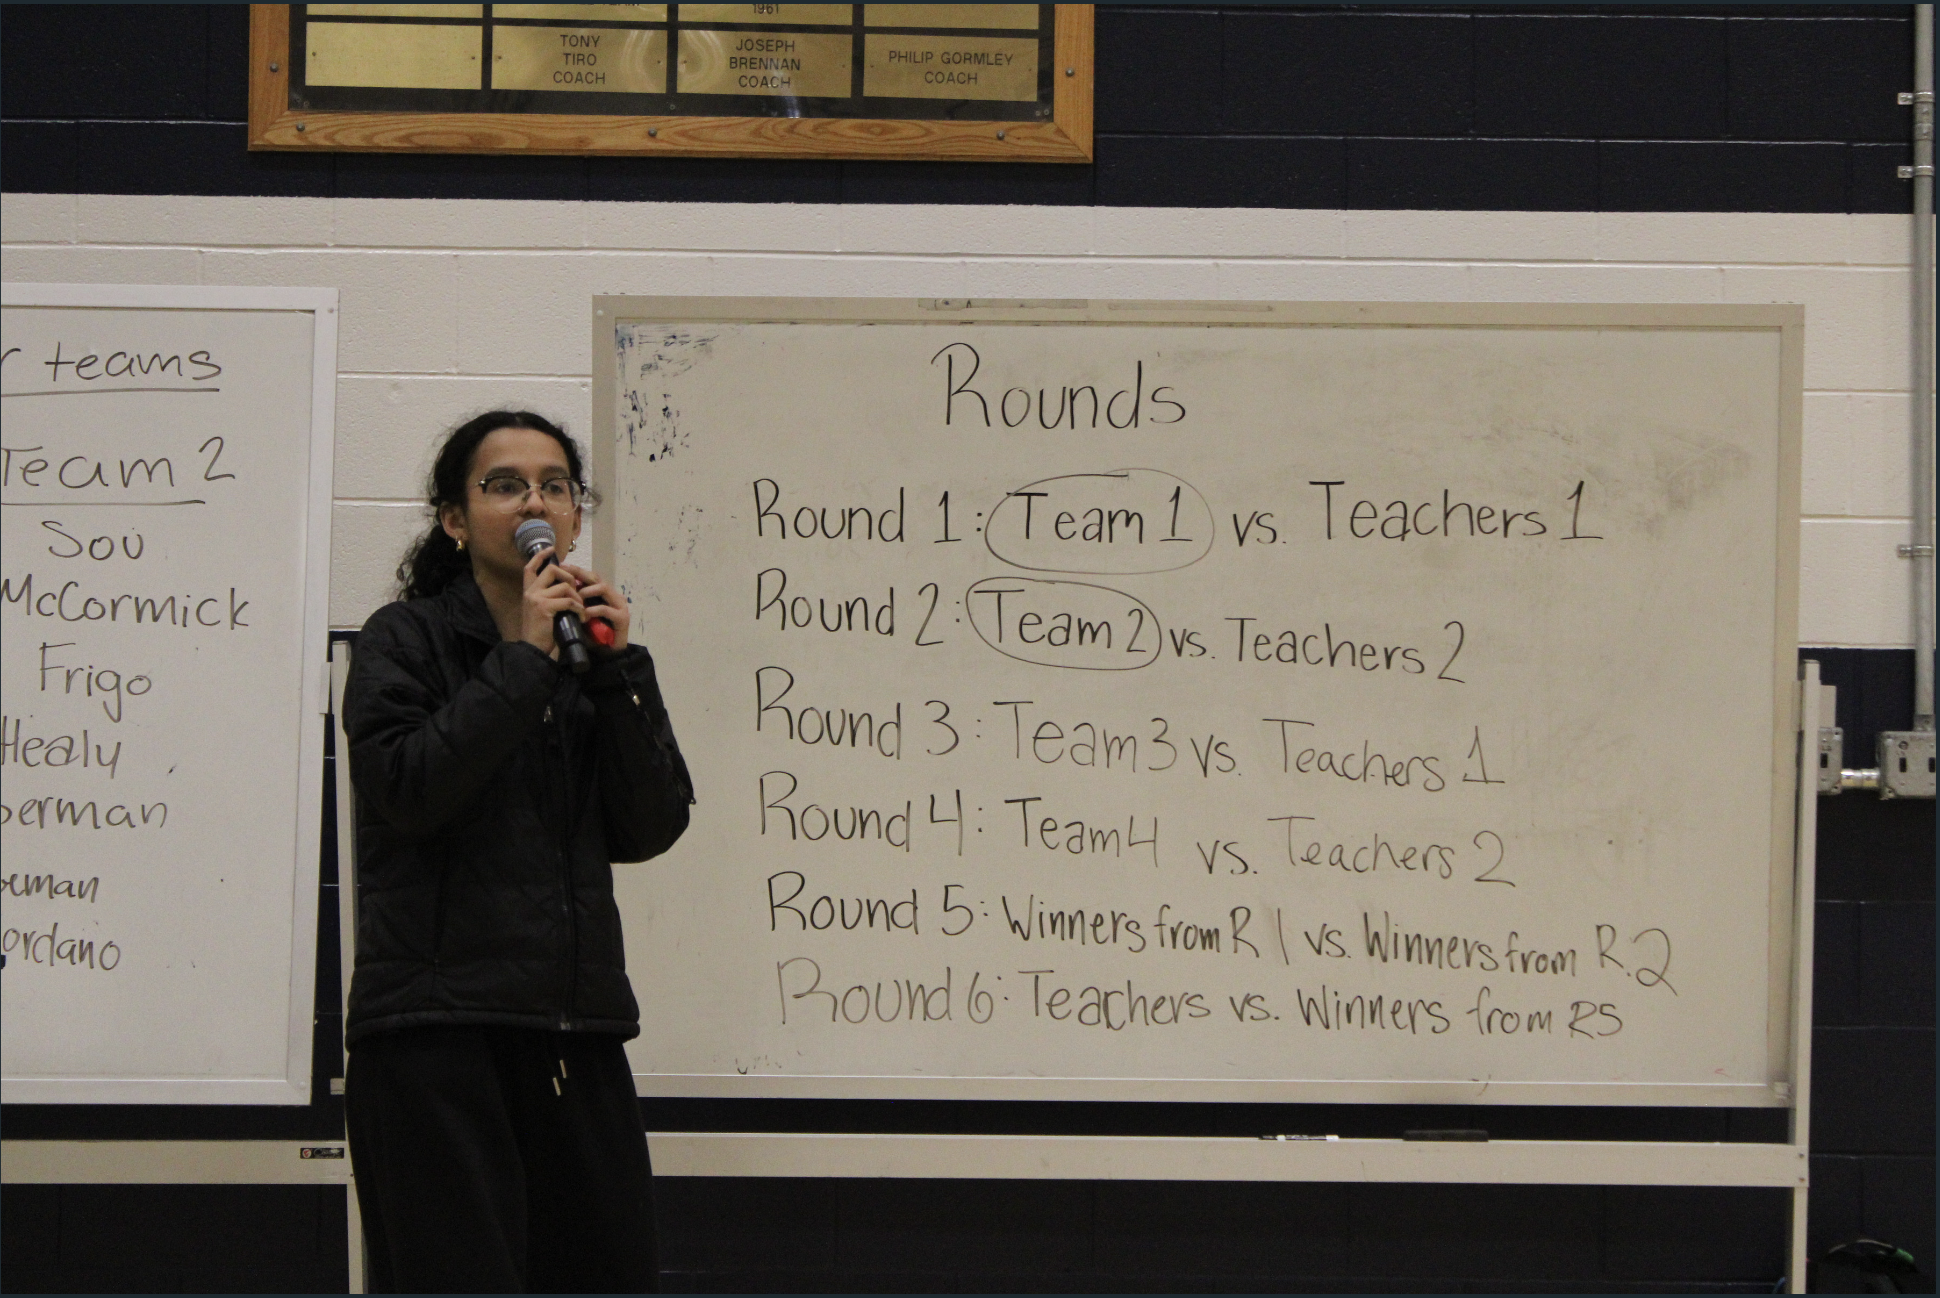 1961
TONY
TIRO
COACH
JOSEPH
BRENNAN
COACH
PHILIP GORMLEY
COACH
teams
Team 2
Sou
McCormick
Frigo
Healy
Rounds
Round 1: Team 1 vs. Teachers 1
Round 2: Team 2 vs. Teachers 2
Round 3: Team 3 vs. Teachers 1
Round 4: Team 4 vs. Teachers 2
Round 5: Winners from R 1 vs. Winners from R.2
Round 6: Teachers vs. Winners from R5